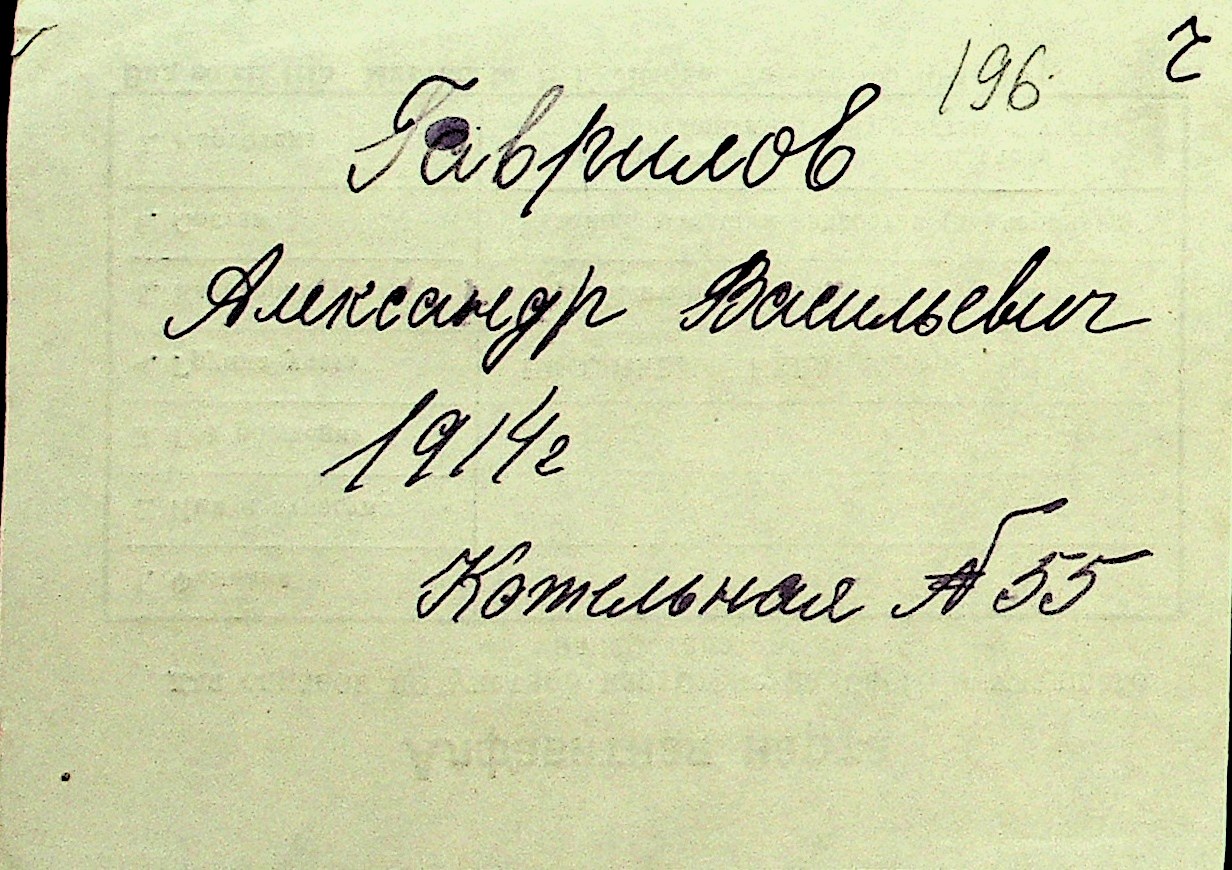 196.
Гаврилов
Александр Васильевич
1914г
Котельная № 55